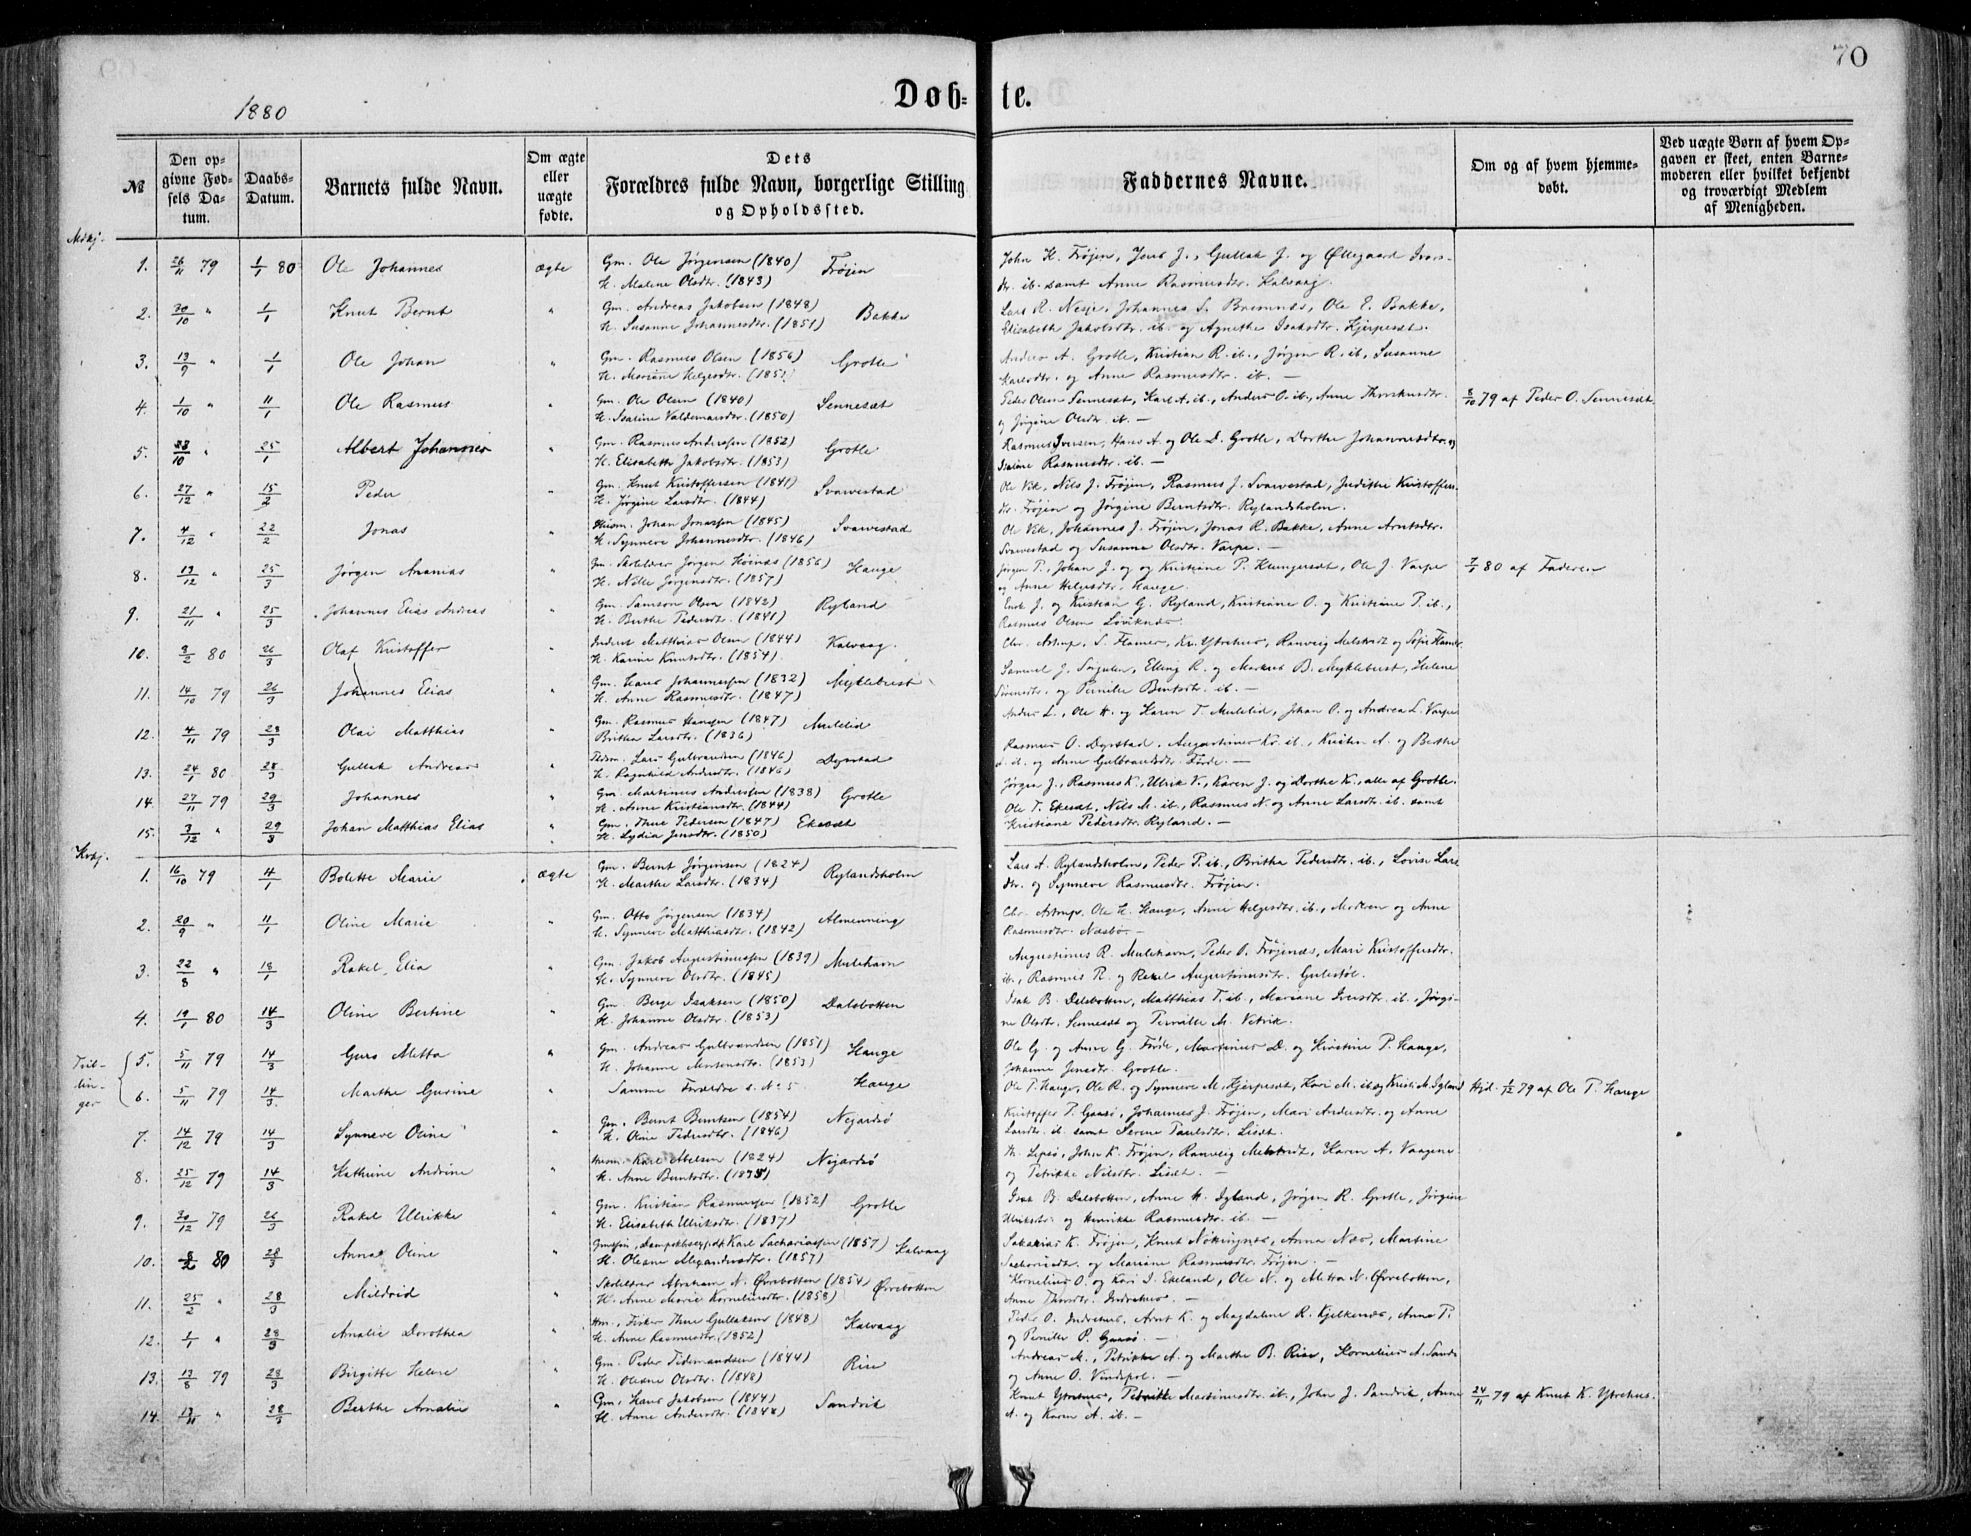 70
Døb=te.
1880
№
Den opgivne Fødsels Datum.
Daabs-Datum.
Barnets fulde Navn.
Om ægte eller uægte fødte.
Dets Forældres fulde Navn, borgerlige Stilling og Opholdssted.
Faddernes Navne.
Om og af hvem hjemmedøbt.
Ved uægte Børn af hvem Opgaven er skeet, enten Barnemoderen eller hvilket bekjendt og troværdigt Medlem af Menigheden.
Mdkj.
1. 26/11 79 1/1 80 Ole Johannes ægte Gm. Ole Jørgensen (1840) H. Malene Olsdtr. (1843) Frøjen
John K. Frøjen, Jens J., Gullak J. og Øllegaard Ivarsdtr. ib. samt Anne Rasmusdtr. Kalvaag.
2. 30/10 " 1/1 Knut Bernt " Gm. Andreas Jakobsen (1848) H. Susanne Johannesdtr. (1851) Bakke
Lars R. Nesje, Johannes S. Bremnes, Ole E. Bakke,
Elisabeth Jakobsdtr. ib. og Agnethe Isaksdtr. Hjerpesæt.
3. 13/9 " 1/1 Ole Johan " Gm. Rasmus Olsen (1856) H. Mariane Helgesdtr. (1851) Grotle
Anders A. Grotle, Kristian R. ib., Jørgen R. ib., Susanne
Karlsdtr. og Anne Rasmusdtr. ib. —
4. 1/10 " 11/1 Ole Rasmus " Gm. Ole Olsen (1840) H. Isaline Valdemarsdtr. (1850) Sennesæt
Peder Olsen Sennesæt, Karl A. ib., Anders O. ib., Anne
og Jørgine Olsdtr. ib. —
79 af Peder O. Sennesæt.
5. 23/10 " 25/1 Albert Johannes " Gm. Rasmus Andersen (1852) H. Elisabeth Jakobsdtr. (1853) Grotle
Rasmus Iversen, Hans A. og Ole D. Grotle, Dorthe Johannesdtr. og
Rasmusdtr. ib. —
6. 27/12 " 15/2 Peder " Gm. Knut Kristoffersen (1841) H. Jørgine Larsdtr. (1844) Svarvestad
Ole Vik, Nils J. Frøjen, Rasmus J. Svarvestad, Judithe Kristoffersdtr. Frøjen og Jørgine Berntsdtr. Rylandsholm.
7. 4/12 " 22/2 Jonas " Husm. Johan Jonassen (1845) H. Synneve Johannesdtr. (1846) Svarvestad
Ole Vik, Johannes J. Frøjen, Jonas R. Bakke, Anne Arntsdtr.
Svarvestad og Susanne Olsdtr. Varpe. —
8. 13/12 " 25/3 Jørgen Ananias " Gm. Skolelærer Jørgen Høinæs (1856) H. Nille Jørgensdtr. (1857) Hauge
Jørgen P., Johan J. og og Kristiane P. Klungresæt, Ole J. Varpe
og Anne Helgesdtr. Hauge.
7/1 80 af Faderen
9. 21/11 " 25/3 Johannes Elias Andreas " Gm. Samson Olsen (1842) H. Berthe Pedersdtr. (1841) Ryland
J. og Kristian G. Ryland, Kristiane O. og Kristiane P. ib.,
Rasmus Olsen
10. 3/2 80 26/3 Olaf Kristoffer " Inderst Matthias Olsen (1844) H. Karine Knutsdtr. (1854). Kalvaag.
Chr. Astrup, S. Flamer, Kr. Ytrehus, Ranveig og Sofie Flamer
11. 14/10 79 26/3 Johannes Elias " Gm. Hans Johannessen (1832) H. Anne Rasmusdtr. (1847) Myklebust
Samuel J. Sørgulen, Elling R. og Markus B. Myklebust, Helene
Simensdtr. og Pernille Berntsdtr. ib. —
12. 4/11 79 28/3 Olai Matthias " Gm. Rasmus Hansen (1847) Britha Larsdtr. (1836) Mulelid
Anders L., Ole H. og Karen T. Mulelid, Johan O. og Andrea L. Varpe
13. 24/1 80 28/3 Gullak Andreas " Lars Gulbrandsen (1846) H. Ragnhild Andersdtr. (1846) Dyrstad
Rasmus O. Dyrstad, Augustinus Kr. ib., Kristen A. og Berthe
ib. og Anne Gulbrandsdtr. Førde. —
14. 27/11 79 29/3 Johannes " Gm. Martinus Andersen (1838) H. Anne Kristiansdtr. (1844) Grotle
Jørgen J., Rasmus K., Ulrik V., Karen J. og Dorthe K., alle af Grotle.
15. 3/12 " 29/3 Johan Matthias Elias " Gm. Thue Pedersen (1847) H. Lydia Jensdtr. (1850) Ekesæt
Ole T. Ekesæt, Nils M. ib., Rasmus N. og Anne Larsdtr. ib. samt
Kristiane Pedersdtr. Ryland. —
Kvkj.
1. 16/10 79 4/1 Bolette Marie ægte Gm. Bernt Jørgensen (1824) H. Marthe Larsdtr. (1834) Rylandsholm
Lars A. Rylandsholm, Peder P. ib., Britha Pedersdtr. ib., Lovise Larsdtr. og Synneve Rasmusdtr. Frøjen.
2. 20/9 " 11/1 Oline Marie " Gm. Otto Jørgensen (1834) H. Synneve Matthiasdtr. (1842) Almenning
Chr. Astrup, Ole H. Hauge, Anne Helgesdtr. ib., Moderen og Anne
Rasmusdtr. Næsbø. —
3. 22/8 " 18/1 Rakel Elia " Gm. Jakob Augustinussen (1839) H. Synneve Olsdtr. (1845) Mulehavn
Augustinus R. Mulehavn, Peder O. Frøjenæs, Mari Kristoffersdtr.
ib., Rasmus R. og Rakel Augustinusdtr. Gulestøl.
4. 19/1 80 14/3 Oline Bertine " Gm. Berge Isaksen (1850) H. Johanne Olsdtr. (1853) Dalsbotten
Isak B. Dalsbotten, Matthias T. ib., Mariane Iversdtr. ib., Jørgine Olsdtr. Sennesæt og Pernille M. Vetvik.
Tvillinger
5. 5/11 79 14/3 Guro Mette " Gm. Andreas Gulbrandsen (1851) H. Johanne Mortensdtr. (1853) Hauge
Ole G. og Anne G. Førde, Martinus D. og Kirstine P. Hauge,
Johanne Jensdtr. Grotle.
6. 5/11 79 14/3. Marthe Gurine " Samme Forældre s. No 5 Hauge
Ole P. Hauge, Ole R. og Synneve M. Hjerpesæt, Kari M. ib. og Kristi M. Igland
Hjd. 79 af Ole P. Hauge
7. 14/12 79 14/3 Synneve Oline " Gm. Bernt Berntsen (1854) H. Oline Pedersdtr. (1846) Nejardsø
Kristoffer P. Gaasø, Johannes J. Frøjen, Mari Andersdtr. og Anne
Larsdtr. ib. samt Serine Paulsdtr. Lisæt.
8. 25/12 79 14/3 Kathrine Andrine " Husm. Karl Abelsen (1824) H. Anne Berntsdtr. Nejardsø
Th. Lepsø, John K. Frøjen, Ranveig Karen A. Vaagene
og Petrikke Nilsdtr. Lisæt. —
9. 30/12 79 26/3 Rakel Ulrikke " Gm. Kristian Rasmussen (1852) H. Elisabeth Ulriksdtr. (1837) Grotle
Isak B. Dalsbotten, Anne H. Igland, Jørgen R. Grotle, Jørgine
Ulriksdtr. og Henrikke Rasmusdtr. ib. —
10. 8/2 80 28/3 Anna Oline " Karl Sachariassen (1857) H. Oleane Alexandersdtr. (1857) Kalvaag
Sakarias K. Frøjen, Knut Nøkingnes, Anna Næs, Martine
og Mariane Rasmusdtr. Frøjen. —
11. 25/2 " 28/3 Mildrid " Skolelærer Abraham N. Ørrebotten (1854) H. Anne Marie Korneliusdtr. (1858) Ørrebotten
Kornelius O. og Kari I. Ekeland, Ole N. og Mitra N. Ørrebotten,
Anne Thorsdtr. Indrehus. —
12. 1/1 " 28/3 Amalie Dorothea " Hm., Fisker Thue Gullaksen (1848) H. Anne Rasmusdtr. (1852) Kalvaag
Peder O. Indrehus, Arnt K. og Magdaline R. Kjelkenes, Anne P.
og Pernille P. Gaasø. —
13. 13/8 79 28/3 Birgitte Helene " Gm. Peder Tidemandsen (1844) H. Oleane Olsdtr. (1848) Rise
Andreas M., Petrikke A. og Marthe B. Rise, Kornelius A. Sande
og Anne O. Vindspol. —
14. 13/11 " 28/3 Berthe Amalie " Gm. Hans Jakobsen (1844) H. Anne Andersdtr. (1848) Sandvik
Knut Ytrehus, Petrikke Martinusdtr. ib., John J. Sandvik, Anne
A. og Karen A. ib. —
24/11 79 af Knut K. Ytrehus.